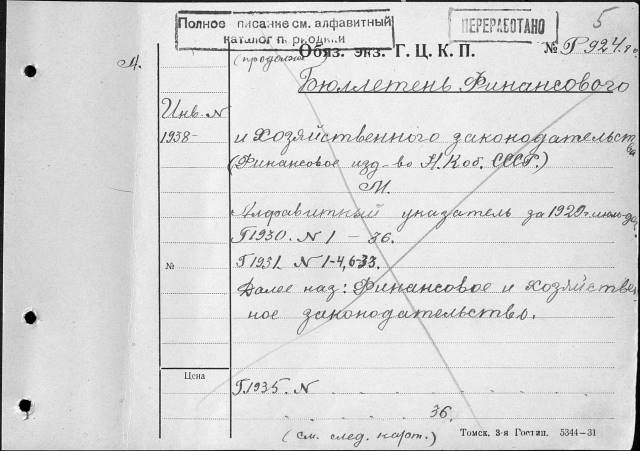 Полное описание см. алфавитный
каталог периодики
ПЕРЕРАБОТАНО
5
Обяз. экз. Г. Ц. К. П.
№ Р 924
А.
(продолжен
Бюллетень Финансового
Инв. N
1938-
и хозяйственного законодательст
ва
(Финансовое изд-во Н.К об. СССР.)
М.
Алфавитный указатель за 1929 г. июль-де
Г1930. N 1 - 36.
№
Г1931. N 1-4, 6-33.
Далее наз: Финансовое и хозяйствен
ное законодательство.
Цена
Г1935. N
36.
(см. след. карт.)
Томск, 3-я Гостип. 5344-31